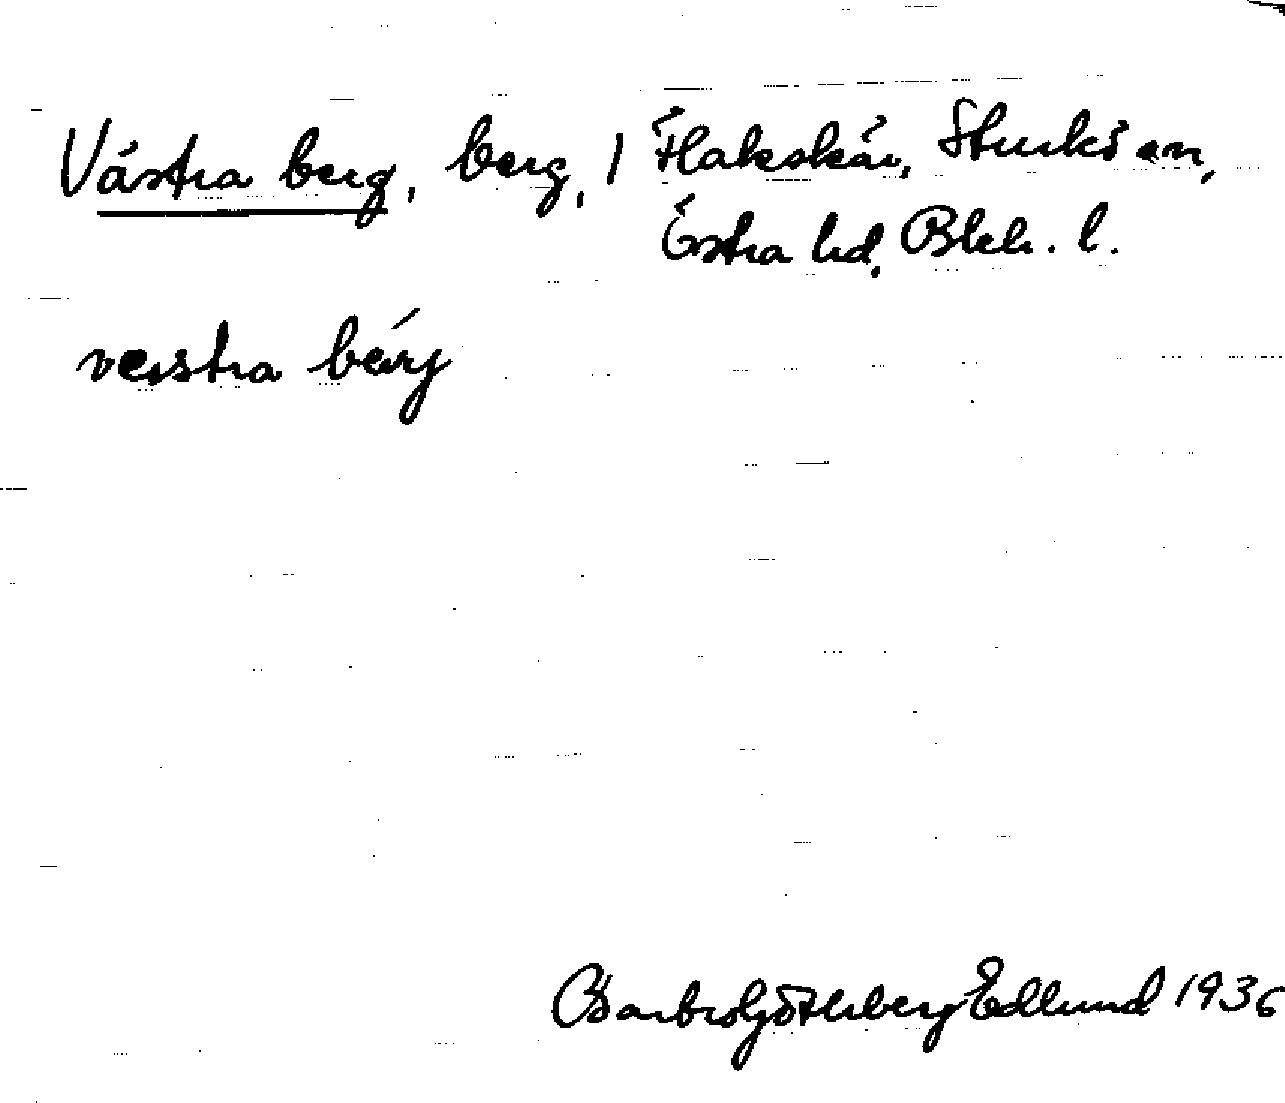 Västra berg, berg, / Flakskär, Sturkö sn,
Östra hd, Blek. l.
vesstra bérj
Barbro Götherberg Edlund 1936